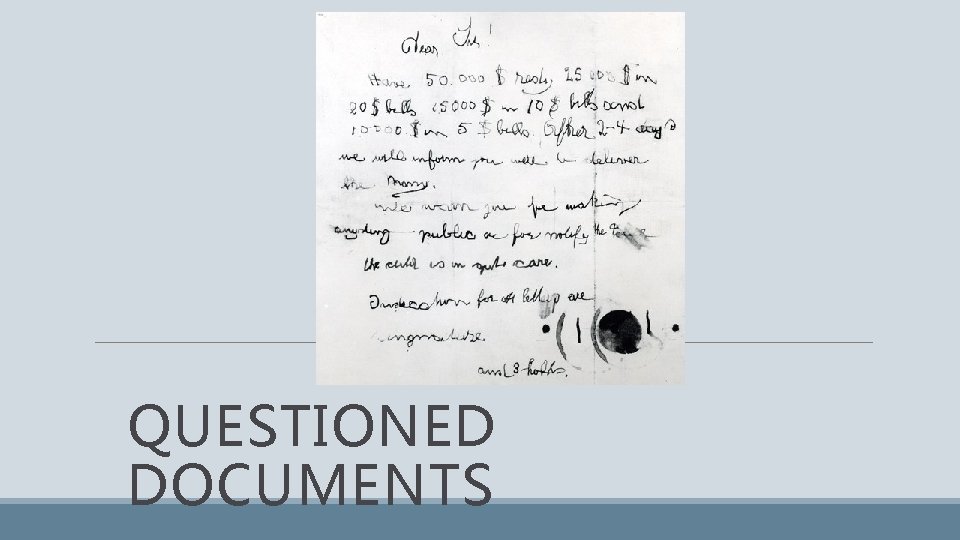 Dear Sir!
Have 50.000 $ redy 25 000 $ in
20 $ bills 15000 $ in 10 $ bills and
10000 $ in 5 $ bills. After 2-4 days
we will inform you were to deliver
the Mony.
We warn you for making
anyding public or for notify the
the child is in gute care.
for all letters are
and 3 holds.
QUESTIONED
DOCUMENTS